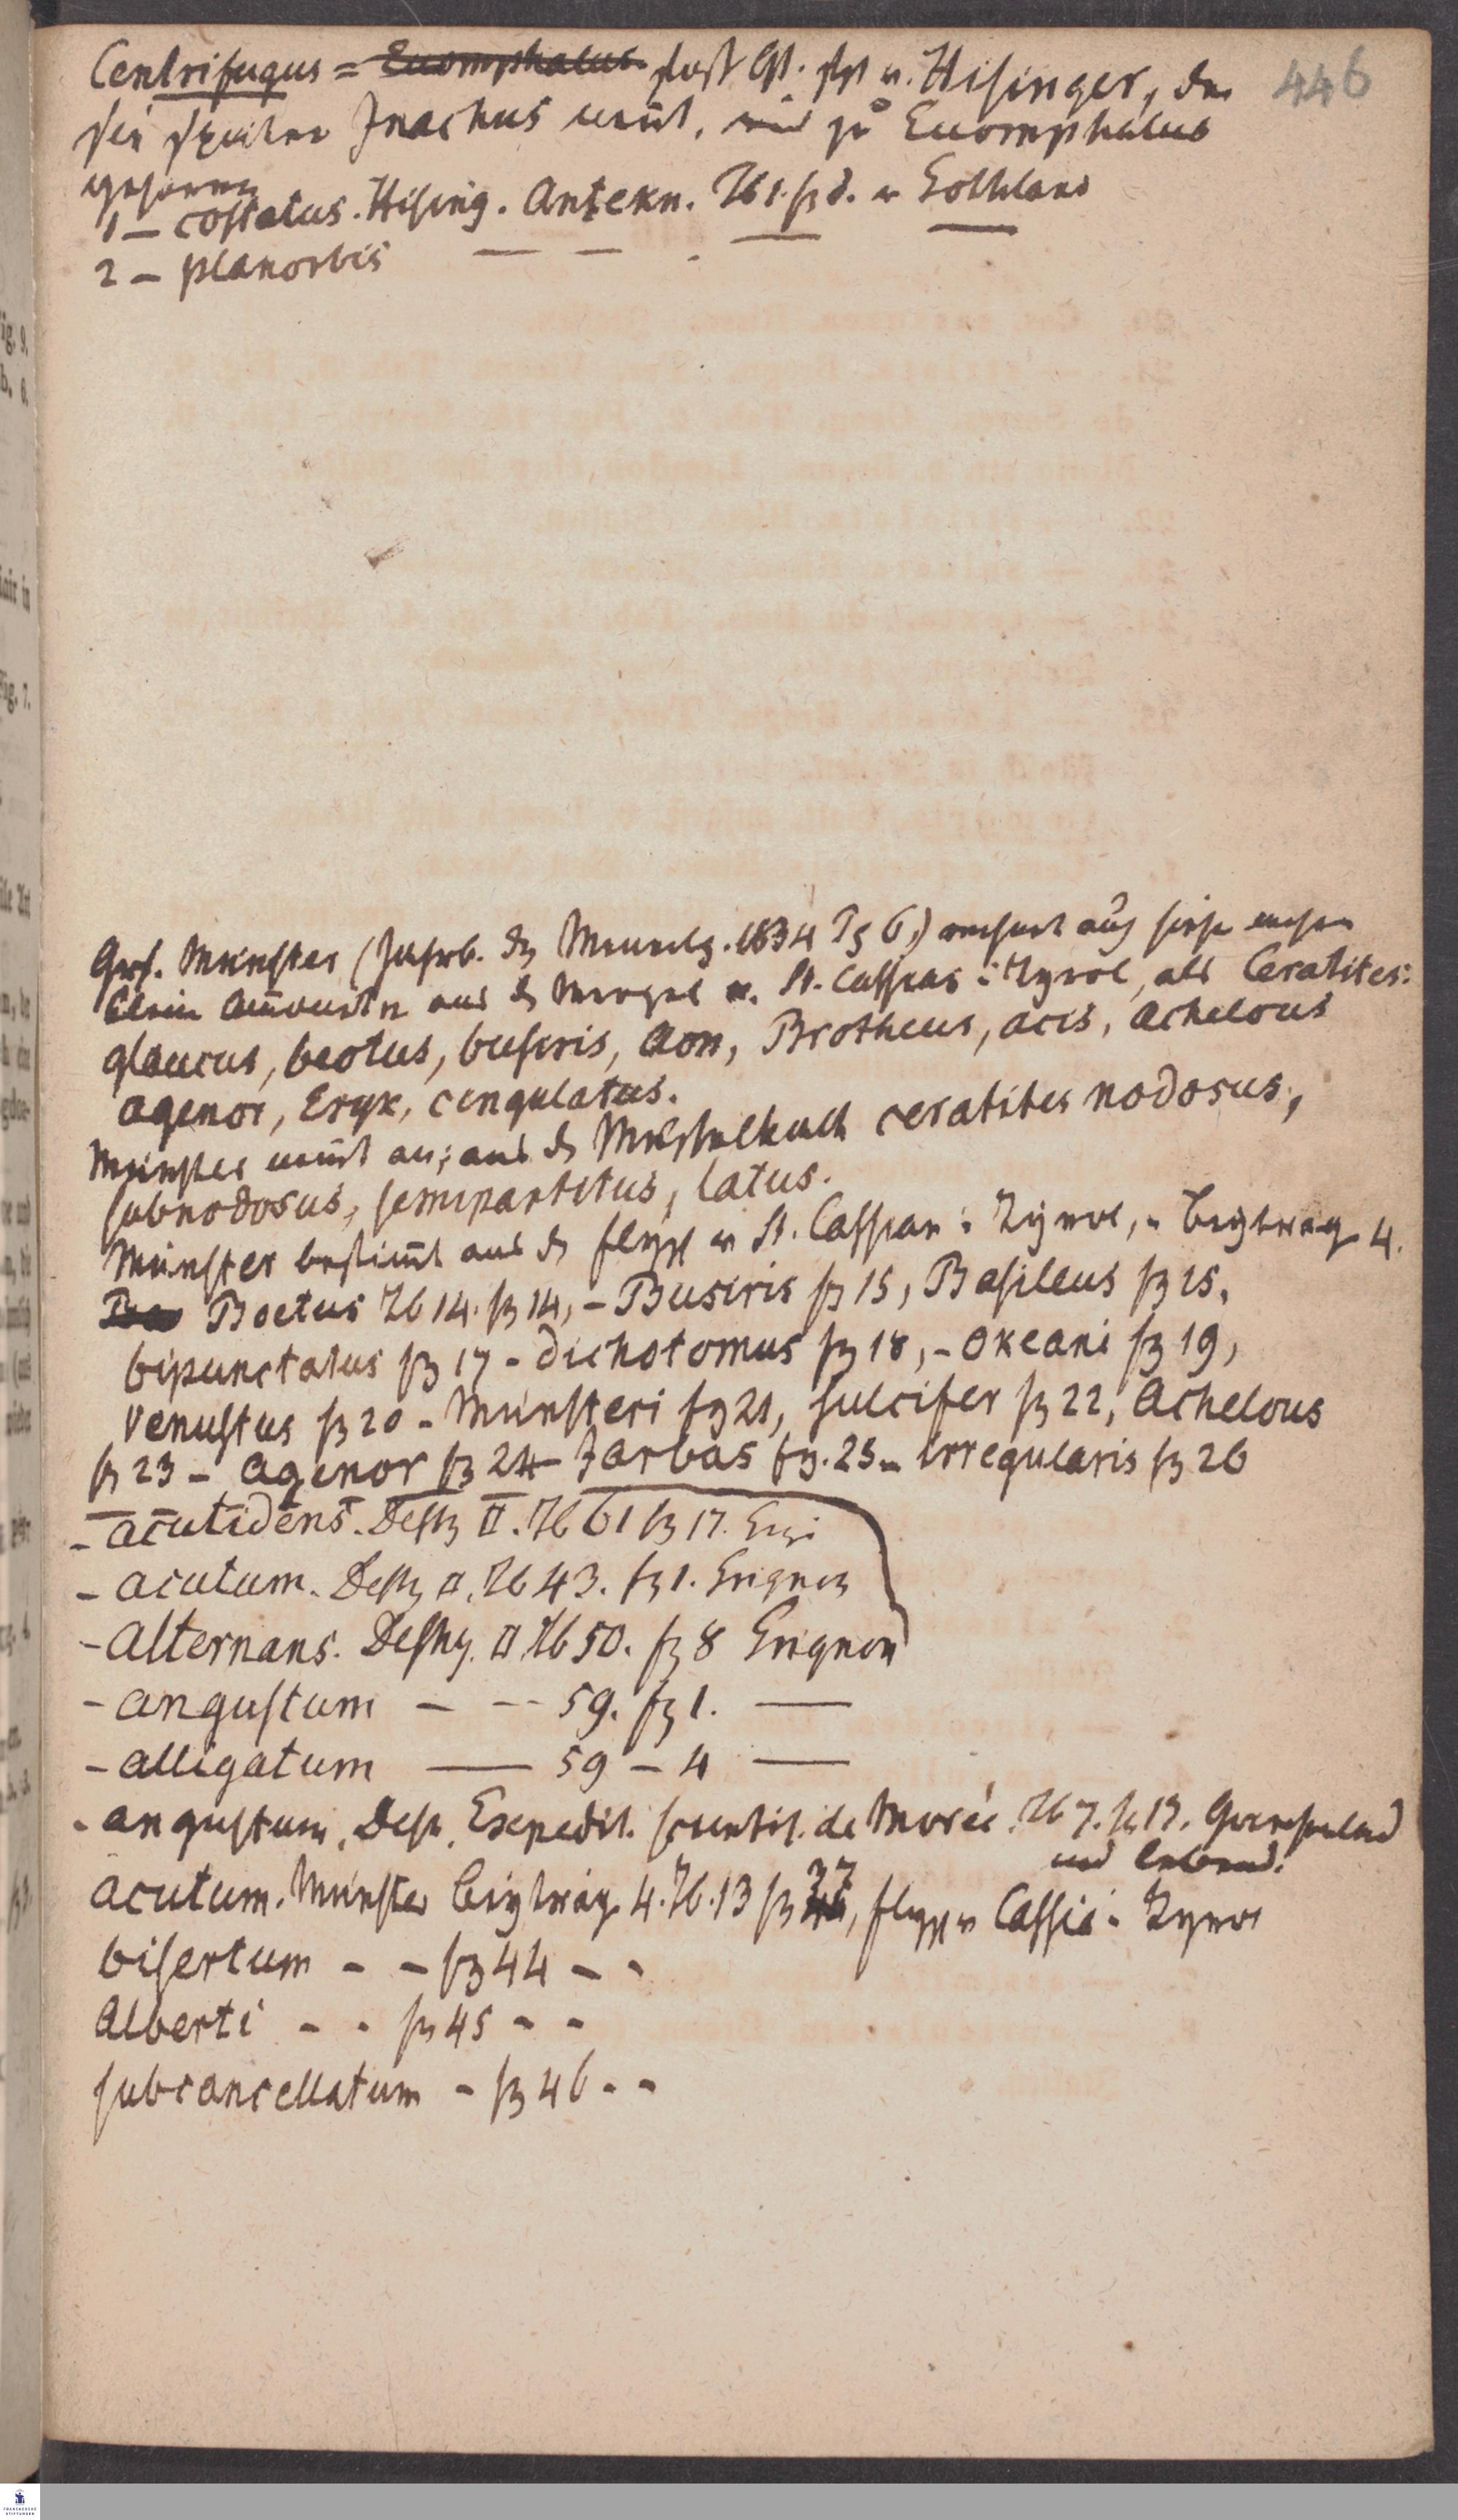 446
Centrifugus = Euomphalus u. Hisinger, der
sie später Inachus nennt, und zu Euomphalus
gehören
1 – costatus. Hising. Antekn. Tb 1. fg d. v Gothland
2 – planorbis — — -
Grf. Münster (Jahrb. der Mineralg. 1834 Pg 6.)
Ammoniten aus d Mergel v. St. Cassian i Tyrol, als Ceratites:
glaucus, beotus, busiris, Aon, Brotheus, acis, Achelous
agenor, Eryx, cingulatus.
Münster nennt an; aus d Muschelkalk ceratites nodosus,
subnodosus, semipartitus, latus.
Münster bestimt aus d flyss v St. Cassian i Tyrol, Beytrag 4.
Boetus Tb 14. fg 14, – Busiris fg 15, Basileus fg 15,
bipunctatus fg 17 – dichotomus fg 18, – Okeani fg 19,
venustus fg 20 – Münsteri fg 21, sulcifer fg 22, Achelous
fg 23 – agenor fg 24 – Jarbas fg. 25 – irregularis fg 26
– acutidens. Desh II. Tb 61 fg 17. Grigi
– acutum. Desh II. Tb 43. fg 1. Grignon
– alternans. Deshy. II Tb 50. fg 8 Grignon
– angustum — -- 59. fg 1. —
– alligatum — 59 – 4 —
- angustum. Desh. Expedit. scientif. de Morée. Tb 7. f. 13. Griechenland
und lebend.
acutum. Münster Beytrag 4. Tb. 13 fg 37, flyss v Cassia i Tyrol
bisertum - – fg 44 – -
Alberti - - fg 45 - -
subcancellatum - fg 46 - -
FRANCKESCHE STIFTUNGEN